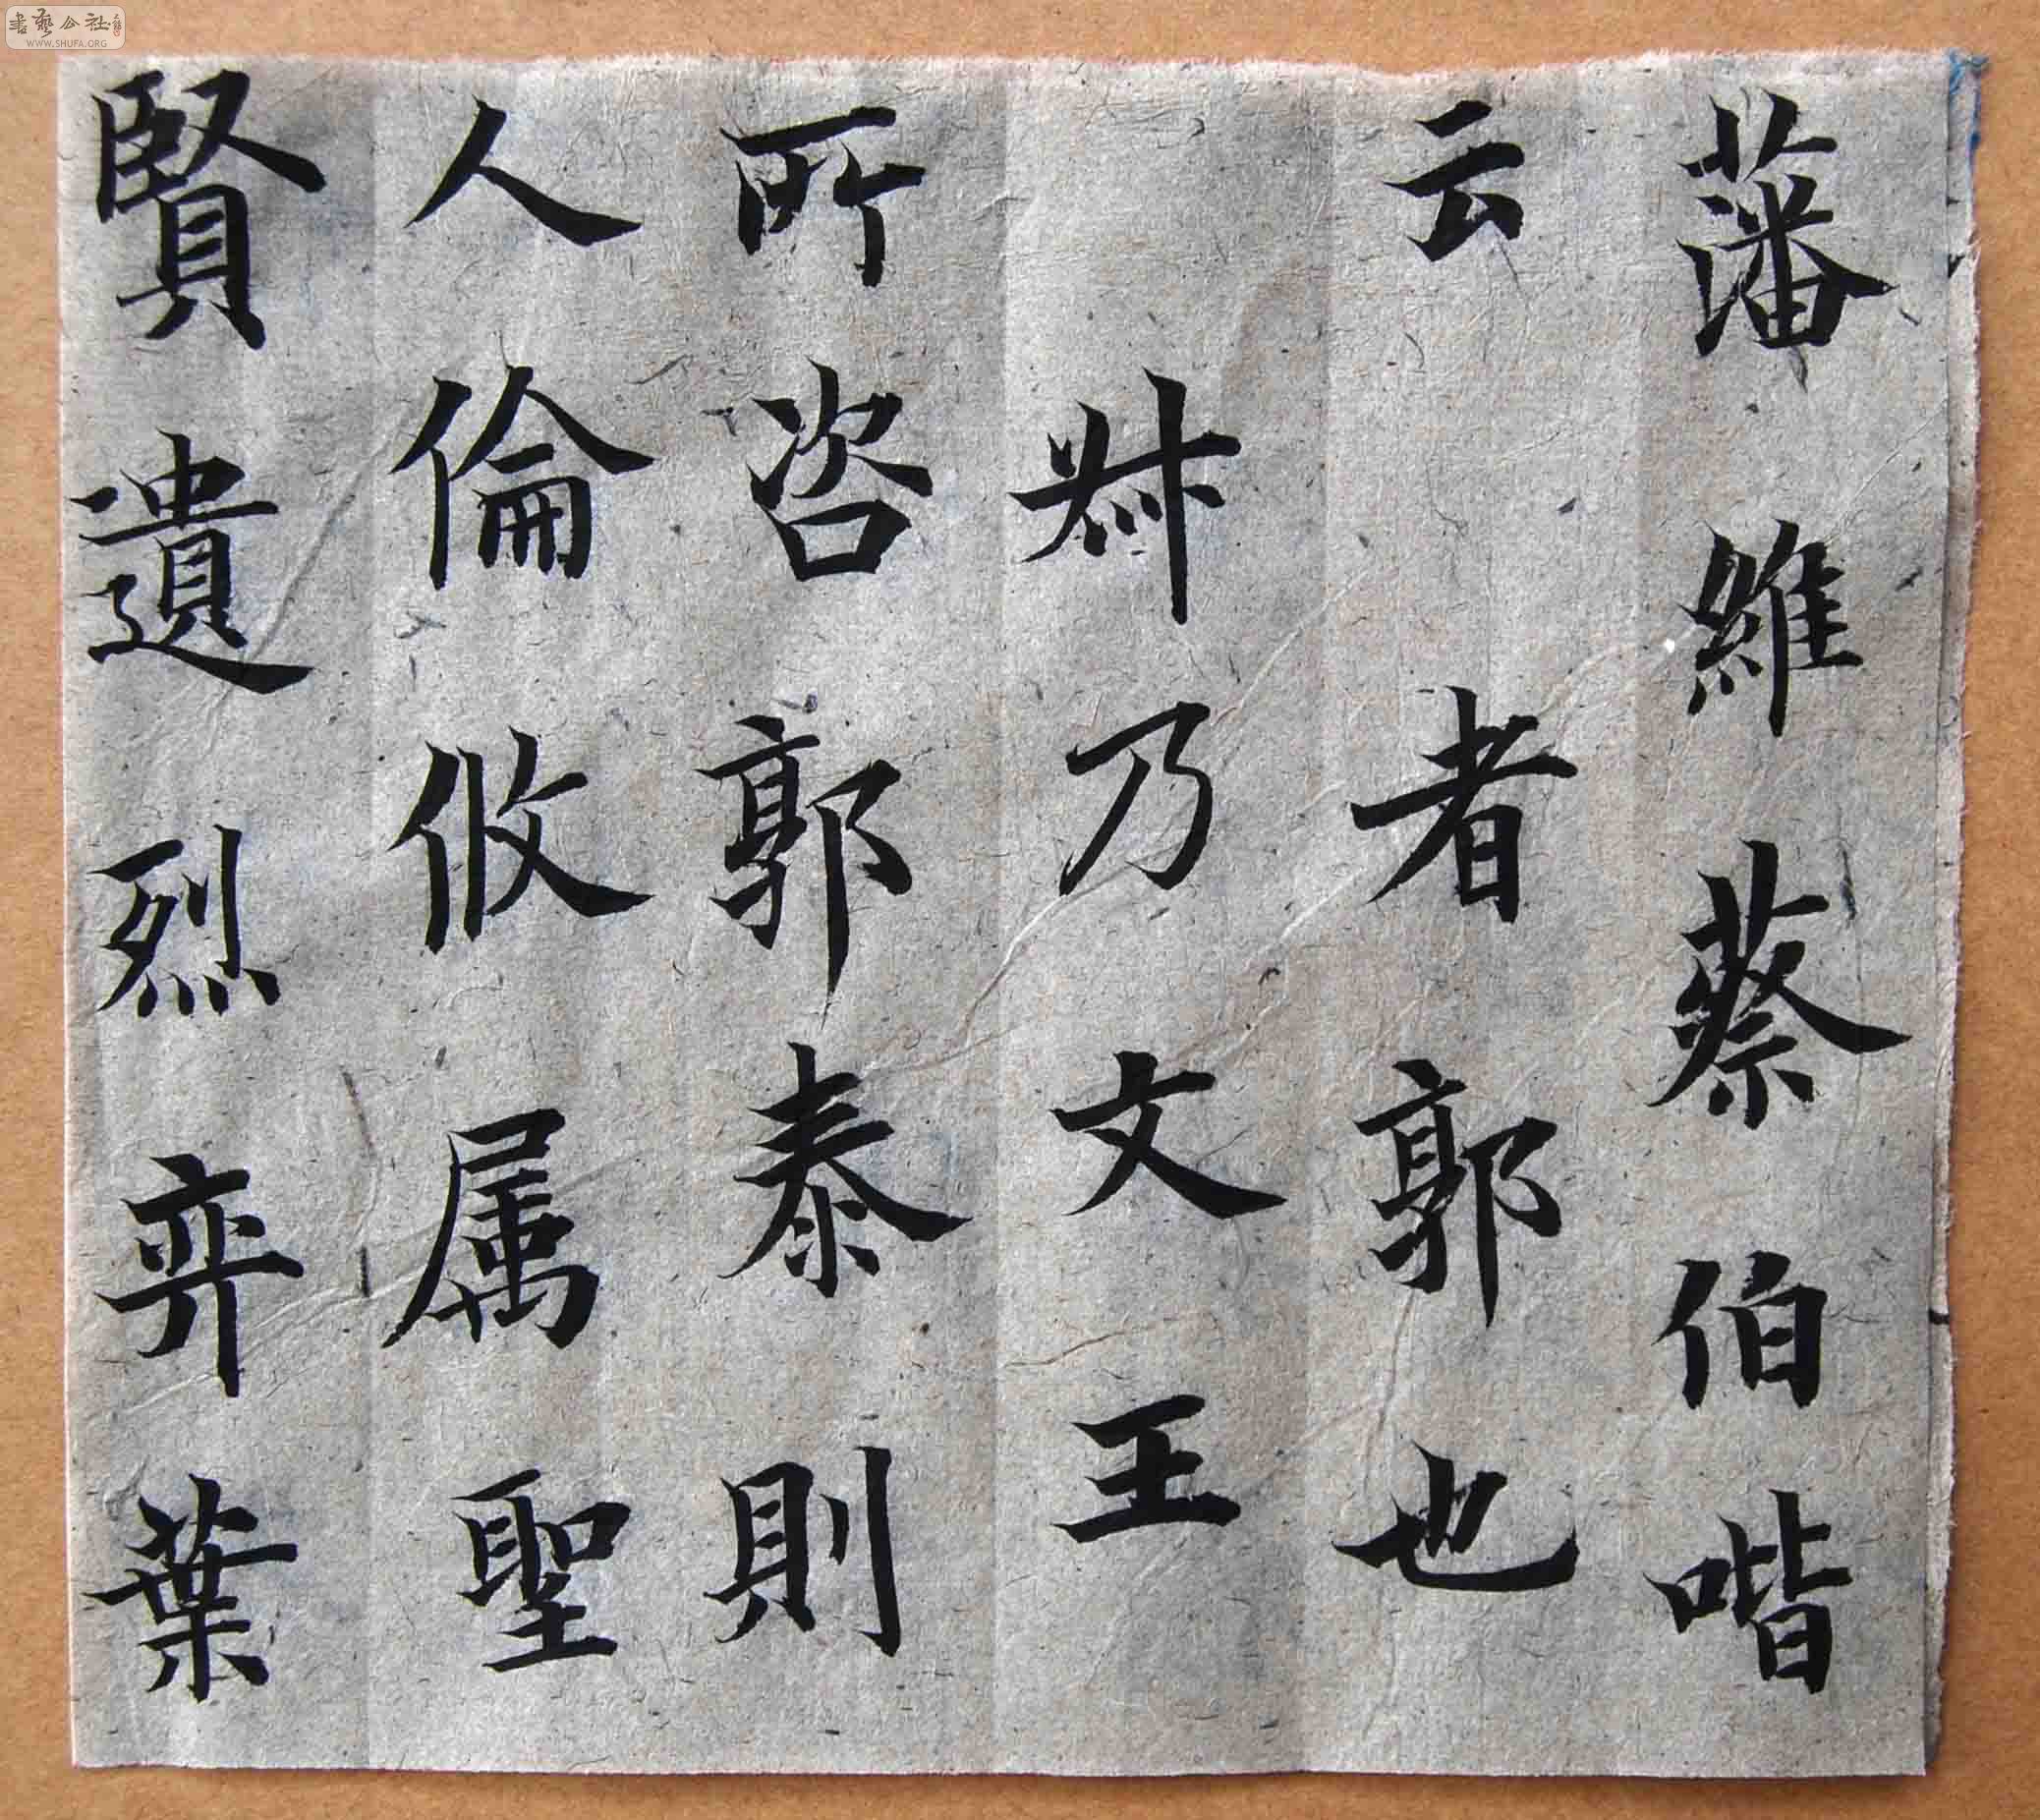 藩維蔡伯喈
云者郭也
叔乃文王
所咨郭泰則
人倫攸属聖
賢遺烈弈葉
書藝公社
WWW.SHUFA.ORG